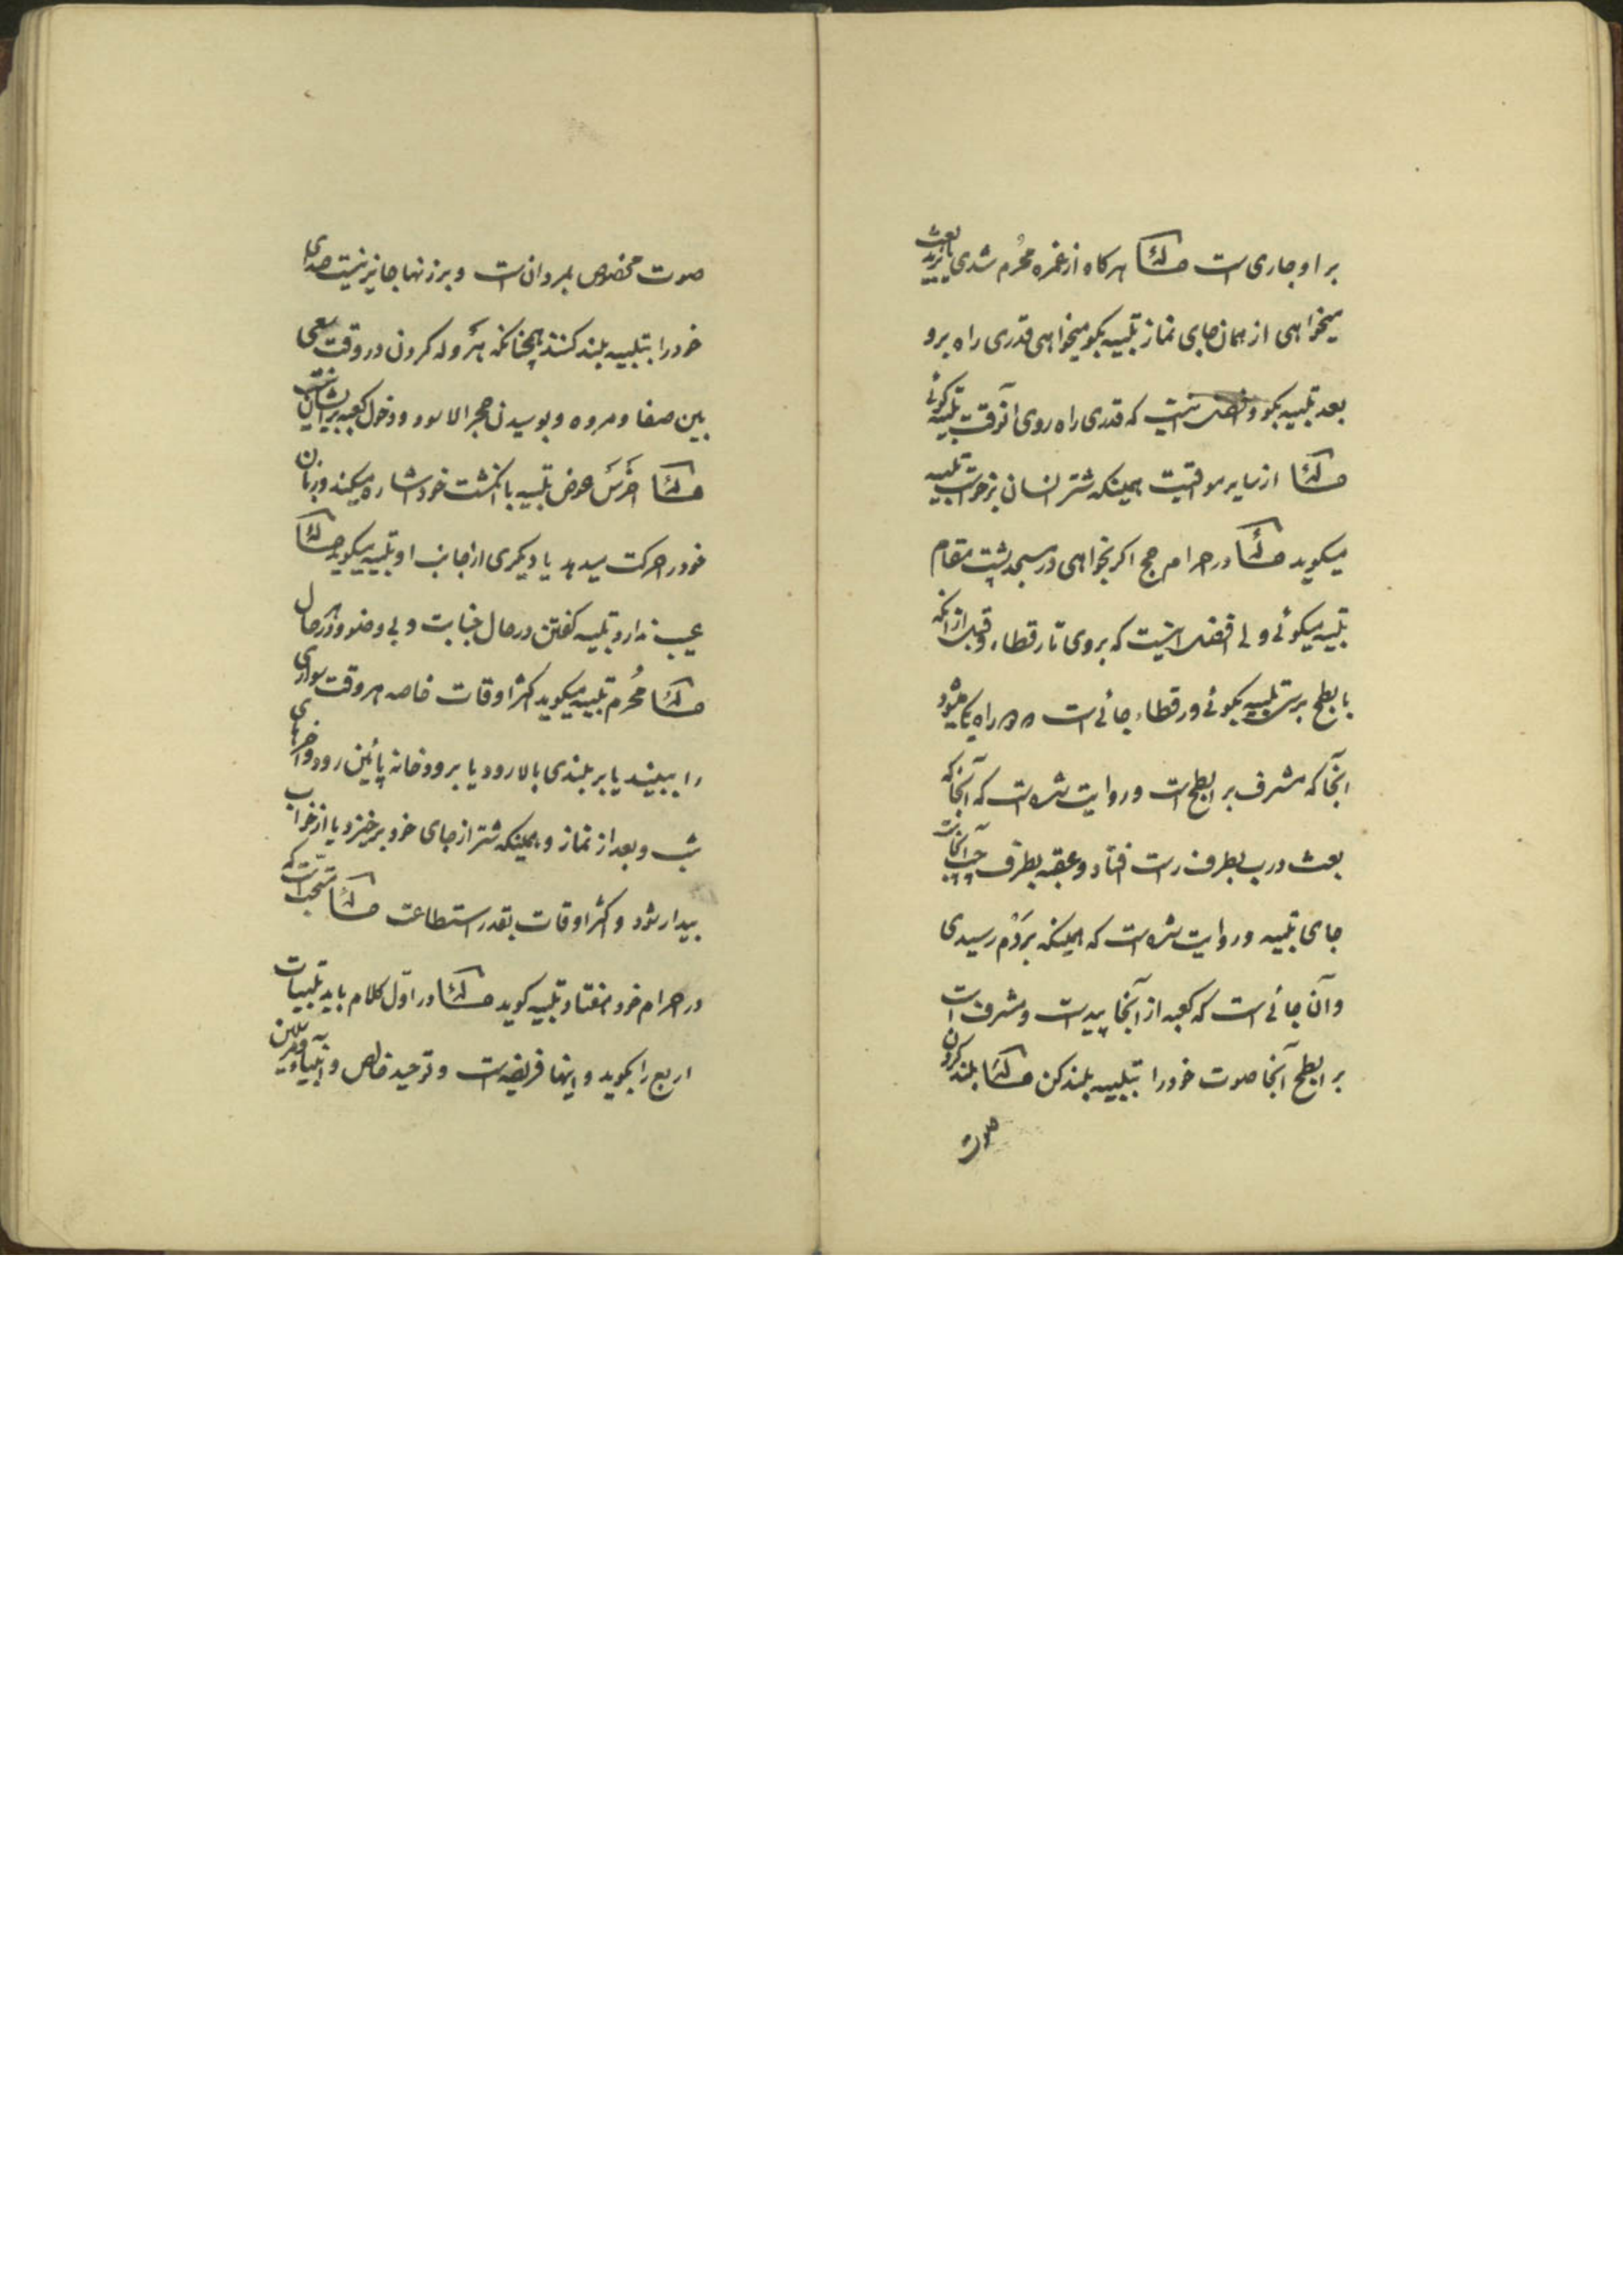 بر او جاری است مسئله هرکاه از غمره محرم شدی یا برید بعث
میخواهی از همان جای نماز تلبیه بکو میخواهی قدری راه برو
بعد تلبیه بکو و افضل اینست که قدری راه روی آنوقت تلبیه کوئی
مسئله از سایر مواقیت همینکه شتر انسان برخواست تلبیه
میکوید مسئله در احرام حج اکر بخواهی در مسجد پشت مقام
تلبیه میکوئی ولی افضل اینست که بروی تا رقطاء و قبل از آنکه
بابطح برسی تلبیه بکوئی و رقطاء جائی است راه یکی میشود
آنجا که مشرف بر ابطح است و روایت شده است که آنجا که
بعث درب بطرف راست افتاد و عقبه بطرف چپ آنجاست
جای تلبیه و روایت شده است که همینکه بردم رسیدی
و آن جائی است که کعبه از آنجا پیداست و مشرف است
بر ابطح آنجا صوت خود را بتلبیه بلند کن مسئله بلند کردن
صوت
صوت مخصوص بمردان است و بر زنها جایز نیست صدای
خود را بتلبیه بلند کنند همچنانکه هروله کردن در وقت سعی
بین صفا و مروه و بوسیدن حجر الاسود و دخول کعبه بر ایشان نیست
مسئله اخرس عوض تلبیه با انکشت خود اشاره میکند و زبان
خود را حرکت میدهد یا دیکری از جانب او تلبیه میکوید مسئله
عیب ندارد تلبیه کفتن در حال جنابت و بی وضو و در هر حال
مسئله محرم تلبیه میکوید اکثر اوقات خاصه هر وقت سواری
را ببیند یا بر بلندی بالا رود یا برودخانه پائین رود و آخرهای
شب و بعد از نماز و همینکه شتر از جای خود برخیزد یا از خواب
بیدار شود و اکثر اوقات بقدر استطاعت مسئله مستحب است که
در احرام خود هفتاد تلبیه کوید مسئله در اول کلام باید تلبیات
اربع را بکوید و اینها فریضه است و توحید خالص و انبیاء و مرسلین به